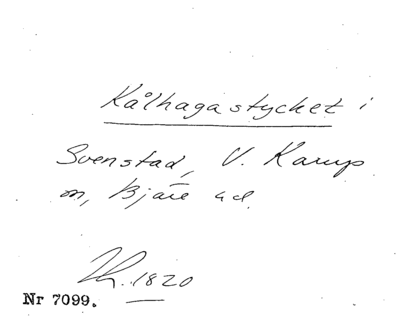 Kålhagastycket i
Svenstad, V. Karup
sn, Bjäre hd.
Lh. 1820
Nr 7099.